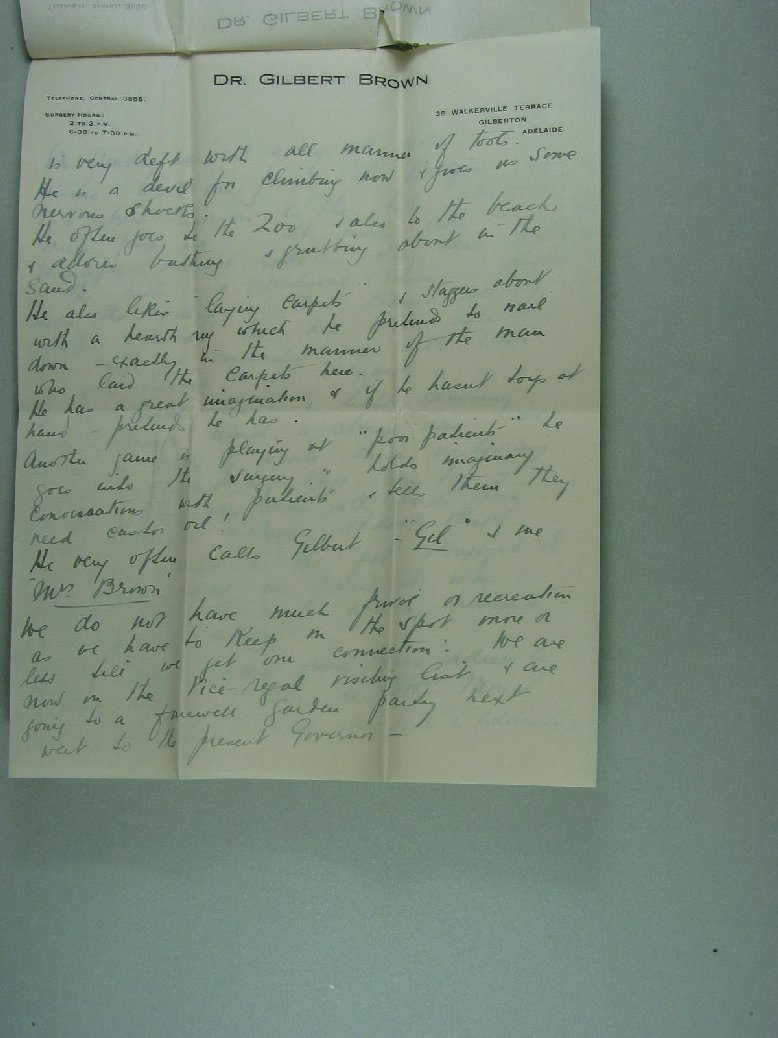 DR. GILBERT BROWN
TELEPHONE, CENTRAL 3886.
SURGERY HOURS:
2 TO 3 P.M.
6-30 TO 7-30 P.M.
36 WALKERVILLE TERRACE
GILBERTON
ADELAIDE
is very deft with all manner of tools.
He is a devil for climbing now & gives us some
nervous shocks.
He often goes to the Zoo & also to the beach
& adores bathing & grubbing about in the
sand.
He also likes "laying carpets" & staggers about
with a hearth rug which he pretends to nail
down – exactly in the manner of the man
who laid the carpets here.
He has a great imagination & if he hasnt toys at
hand – pretends he has.
Another game is playing at "poor patients" he
goes into the "surgery" & holds imaginary
conversations with patients & tells them they
need castor oil!
He very often calls Gilbert – "Gil" & me
"Mrs Brown"
We do not have much or recreation
as we have to keep on the spot more or
less till we get our connection. We are
now on the Vice-regal visiting list & are
going to a farewell garden party next
week to the present Governor –